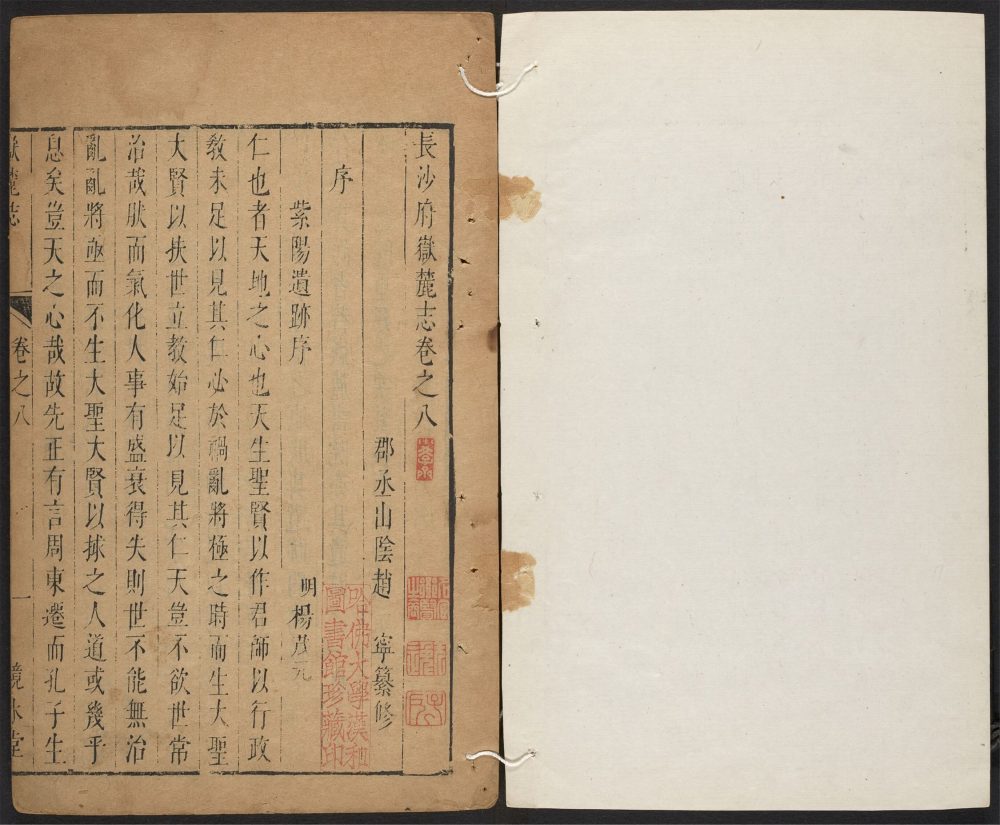 長沙府嶽麓志卷之八
郡丞山陰趙 寧纂修
序
紫陽遺跡序 明楊茂元
仁也者天地之心也天生聖賢以作君師以行政
教未足以見其仁必於禍亂將極之時而生大聖
大賢以扶世立教始足以見其仁天豈不欲世常
治哉肰而氣化人事有盛衰得失則世不能無治
亂亂將亟而不生大聖大賢以捄之人道或幾乎
息矣豈天之心哉故先正有言周東遷而孔子生
嶽麓志 卷之八 一 鏡水堂
哈佛大學漢和
圖書館珍藏印